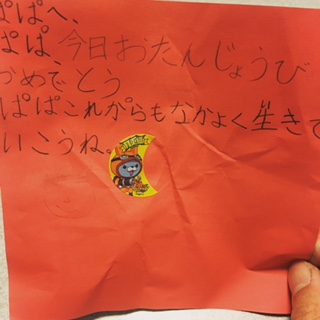 ぱぱへ、
ぱぱ、今日おたんじょうび
おめでとう
ぱぱこれからもなかよく生きて
いこうね。